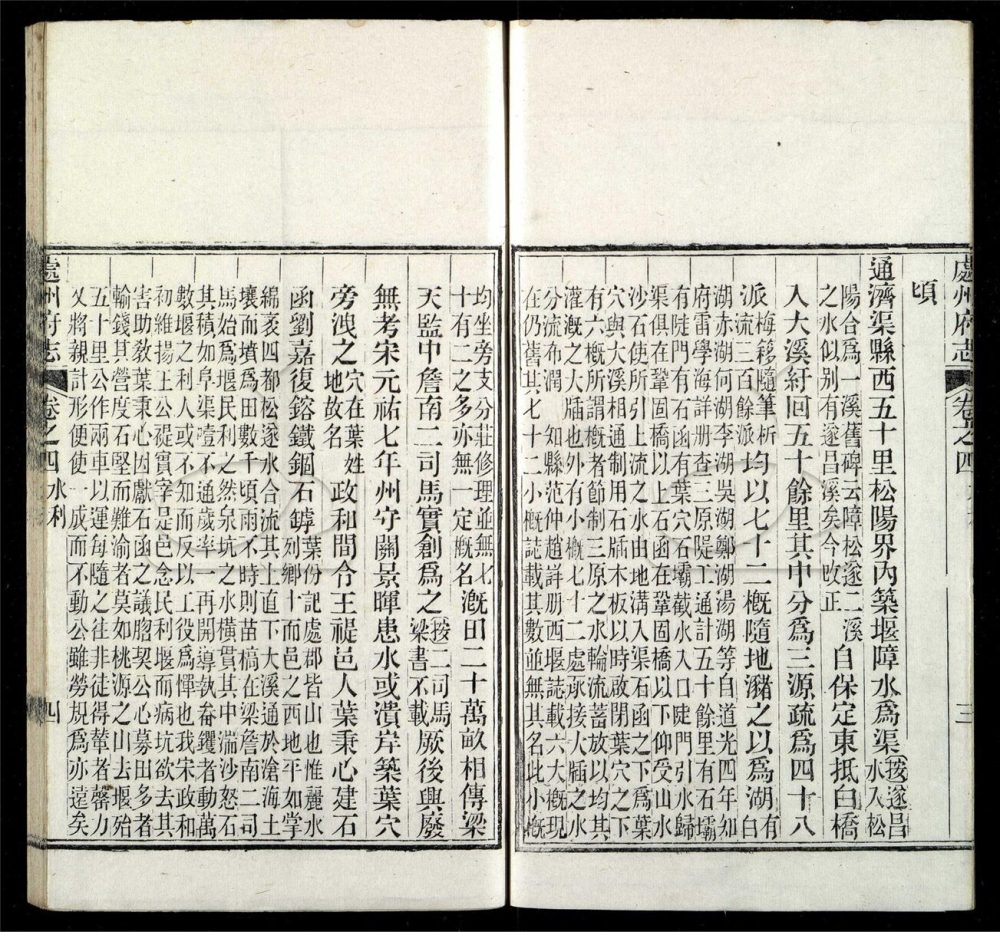 處州府志 卷之四 三
頃
通濟渠縣西五十里松陽界內築堰障水為渠
按遂昌
水入松
陽合為一溪舊碑云障松遂二溪
之水似別有遂昌溪矣今改正
自保定東抵白橋
入大溪紆回五十餘里其中分為三源疏為四十八
派
梅簃隨筆析
流三百餘派
均以七十二概隨地瀦之以為湖
有
白
湖赤湖何湖李湖吳湖鄭湖湯湖等自道光四年知
府雷學海詳册查三原隄工通計五十餘里有石壩
有陡門有石函有葉穴石壩截水入口陡門引水歸
渠俱在鞏固橋以上石函在鞏固橋以下仰受山水
沙石使所引上流之水由地溝入渠石函之下為葉
穴與大溪相通制用石牐木板以時啟閉葉穴之下
有六概所謂概者節制三原之水輪流蓄放以均其
灌溉之大牐也外有小概七十二處承接大牐之水
分流布潤 知縣范仲趙詳册西堰誌載六大概現
在仍舊其七十二小概誌載其數並無其名此小概
均坐旁支分莊修理並無七
十有二之多亦無一定概名
溉田二十萬畝相傳梁
天監中詹南二司馬實創為之
按二司馬
梁書不載
厥後興廢
無考宋元祐七年州守關景暉患水或潰岸築葉穴
旁洩之
穴在葉姓
地故名
政和間令王禔邑人葉秉心建石
函劉嘉復鎔鐵錮石罅
葉份記處郡皆山也惟麗水
列鄉十而邑之西地平如掌
綿袤四都松遂水合流其上直下大溪通於滄海土
壤而墳為田數千頃雨不時則苗槁在梁詹南二司
馬始為堰民利之然泉坑之水橫貫其中湍沙怒石
其積如阜渠噎不通歲率一再開導執畚钁者動萬
數堰之利人或不知而反以工役為憚也我宋政和
初維揚王公禔實宰是邑念民利堰而病坑欲去其
害助教葉秉心因獻石函之議脗契公心募田多者
輸錢其營度石堅而難渝者莫如桃源之山去堰殆
五十里公作兩車以運每隨之往非徒得輦者罄力
又將親計形便使一成而不動公雖勞規為亦遠矣
處州府志 卷之四 水利 四